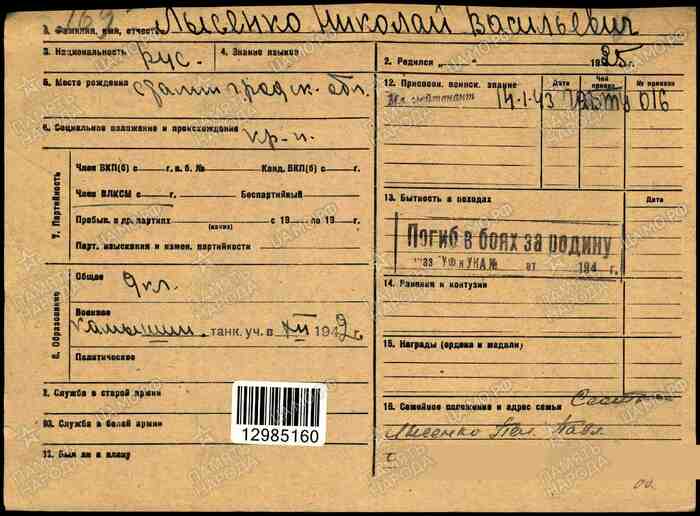 1. Фамилия, имя, отчество Лысенко Николай Васильевич
3. Национальность Рус. 4. Знание языков
2. Родился „ — “ — 1925 г.
5. Место рождения Сталинградск. обл.
6. Социальное положение и происхождение кр-н.
7. Партийность
Член ВКП(б) с — г. п. б. № Канд. ВКП(б) с — г.
Член ВЛКСМ с — г. Беспартийный
Пребыв. в др. партиях с 19 — по 19 — г.
(каких)
Парт. взыскания и измен. партийности
8. Образование
Общее 9 кл.
Военное
Камышин. танк. уч. в XII 1942 г.
Политическое
9. Служба в старой армии
10. Служба в белой армии
11. Был ли в плену
12985160
12. Присвоен. воинск. звание Дата Чей приказ № приказа
Мл. лейтенант 14.1.43 016
13. Бытность в походах Дата
Погиб в боях за родину
каз ГУФ и УКА № от 194 г.
14. Ранения и контузии
15. Награды (ордена и медали)
16. Семейное положение и адрес семьи
Лысенко
ПАМЯТЬ НАРОДА
ЦАМО.РФ